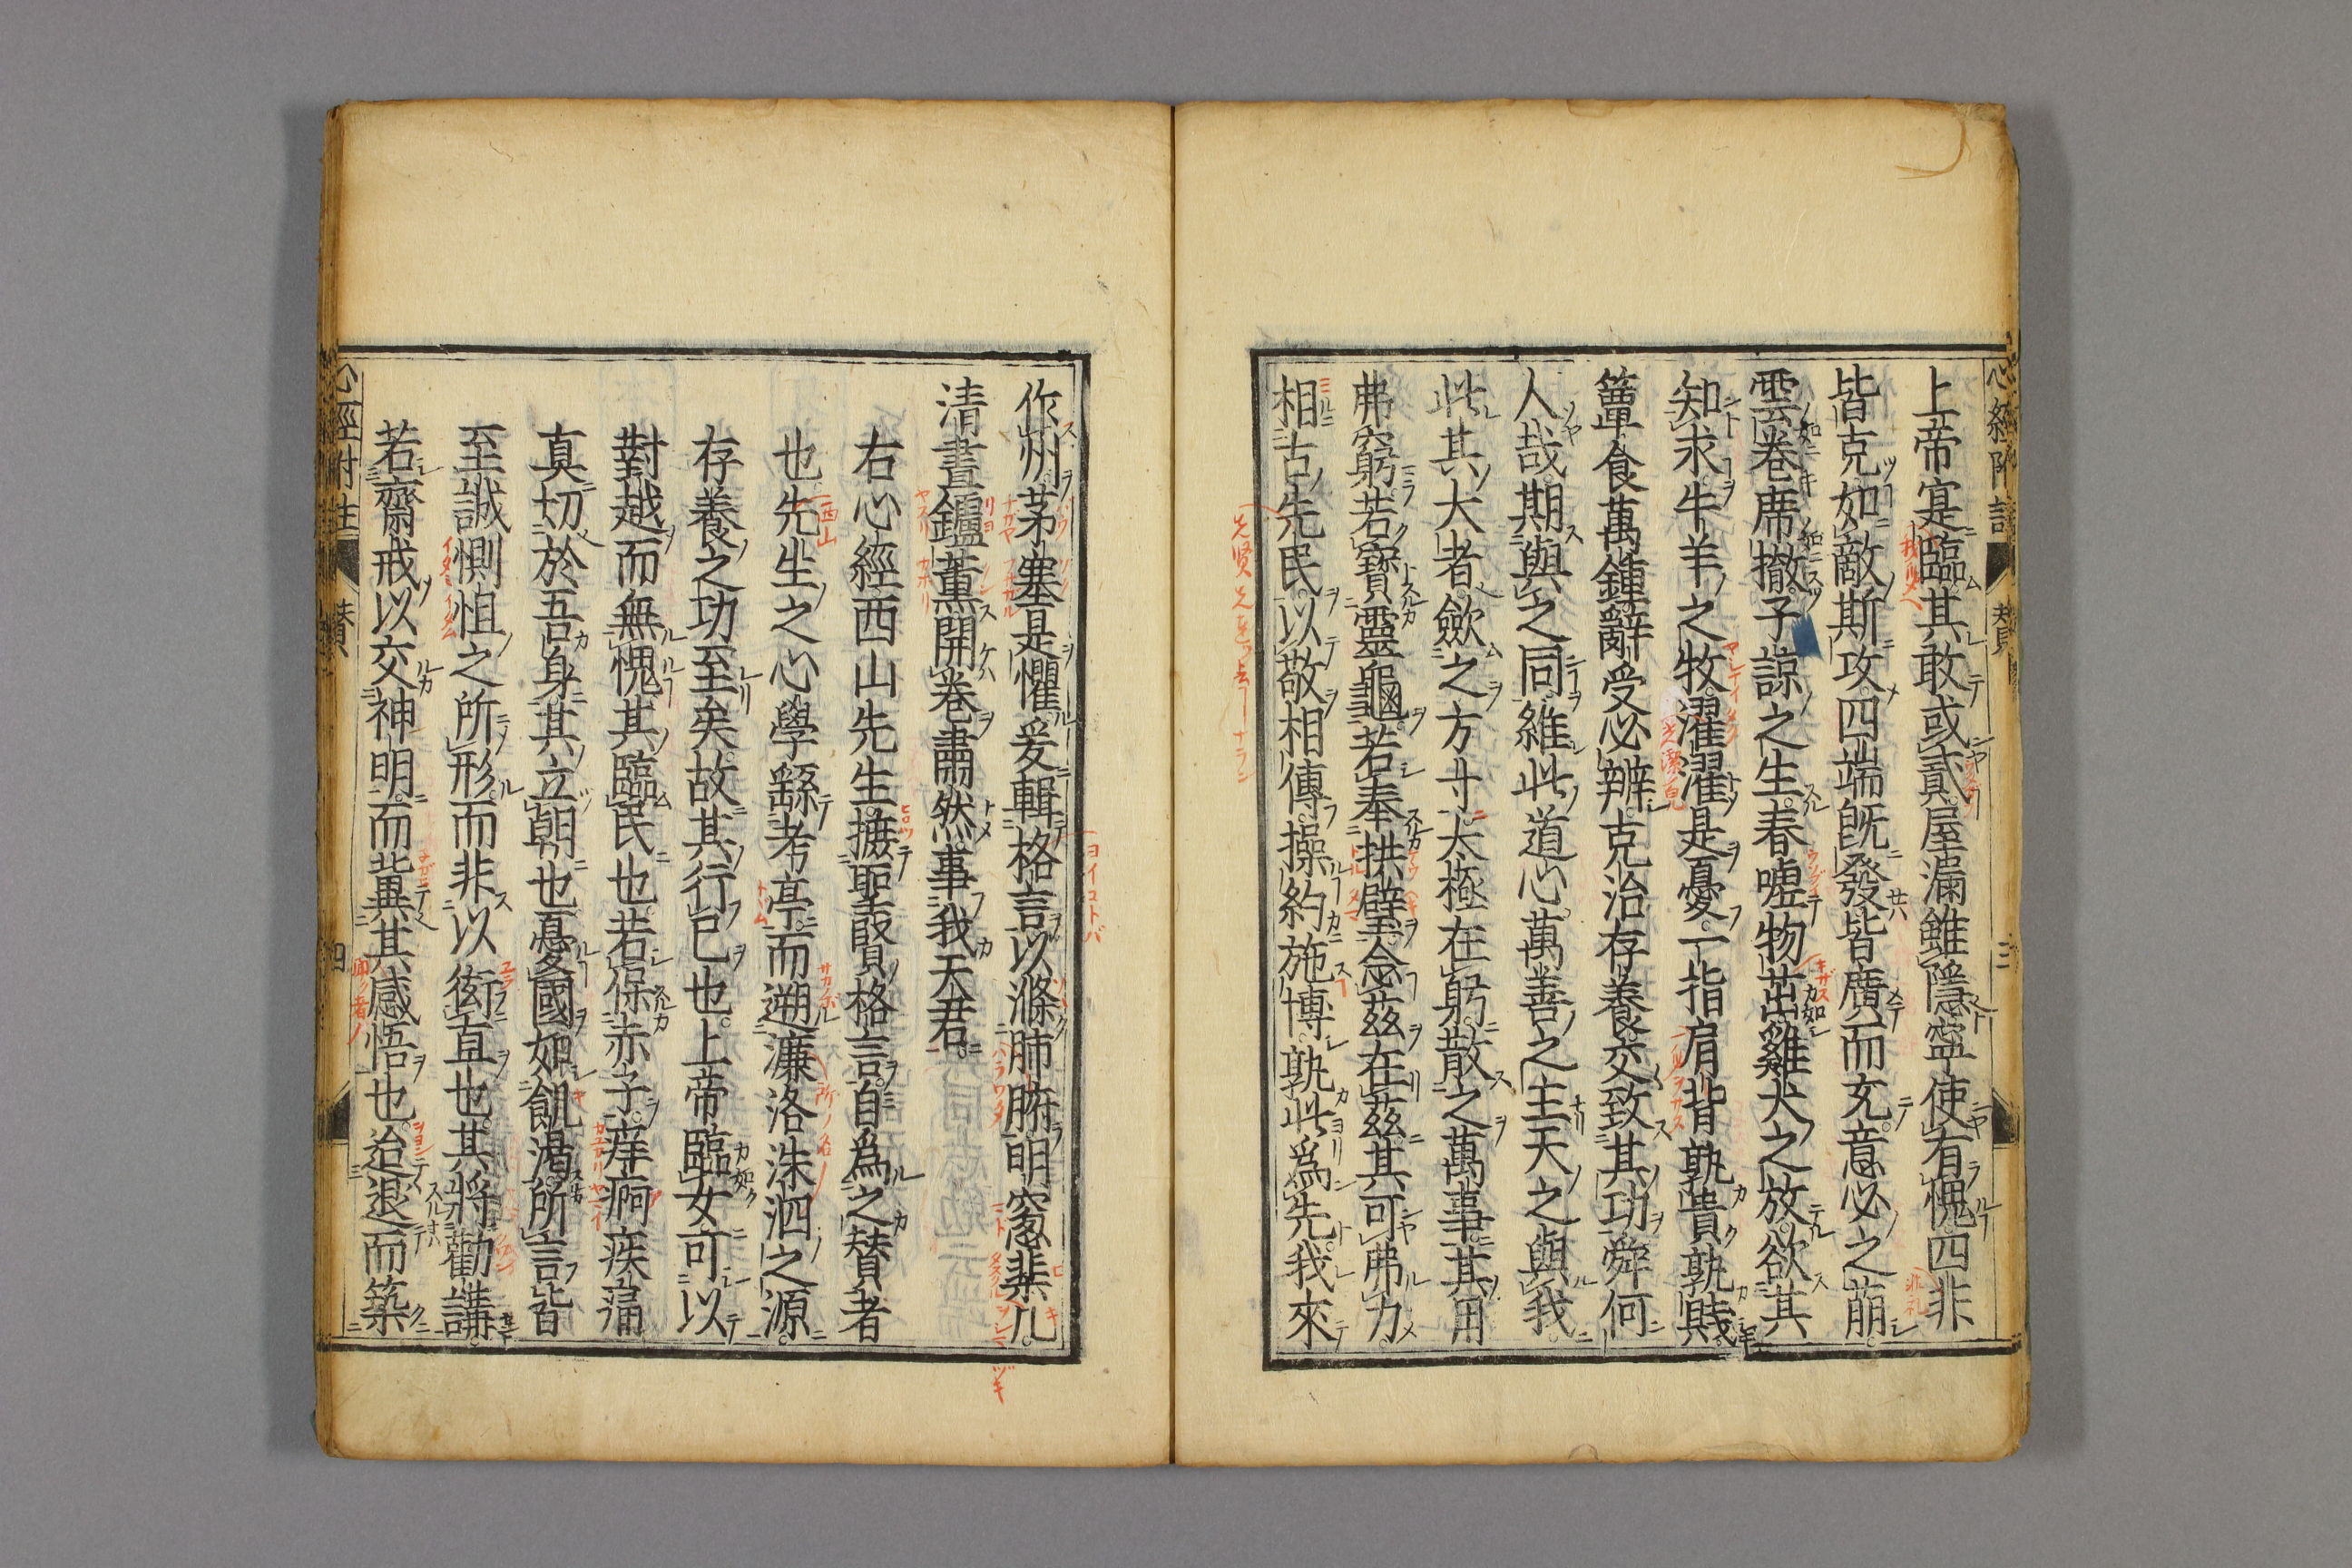 上帝寔臨其敢或貳屋漏雖隱寧使有愧四非
皆克如敵斯攻四端旣發皆廣而充意必之萌
雲卷席撤子諒之生春噓物茁雞犬之放欲其
知求牛羊之牧濯濯是憂一指肩背孰貴孰賤
簞食萬鍾辭受必辨克治存養交致其功舜何
人哉期與之同維此道心萬善之主天之與我
此其大者歛之方寸太極在躬散之萬事其用
弗窮若寶靈龜若奉拱璧念茲在茲其可弗力
相古先民以敬相傳操約施博孰此爲先我來
作州茅塞是懼爰輯格言以滌肺腑明窻棐几
清晝鑪薰開卷肅然事我天君
右心經西山先生摭聖賢格言自爲之賛者
也先生之心學繇考亭而遡濂洛洙泗之源
存養之功至矣故其行已也上帝臨女可以
對越而無愧其臨民也若保赤子痒痾疾痛
真切於吾身其立朝也憂國如飢渴所言皆
至誠惻怛之所形而非以衒直也其將勸講
若齋戒以交神明而冀其感悟也迨退而築
心經附註 賛 三
心經附註 賛 四